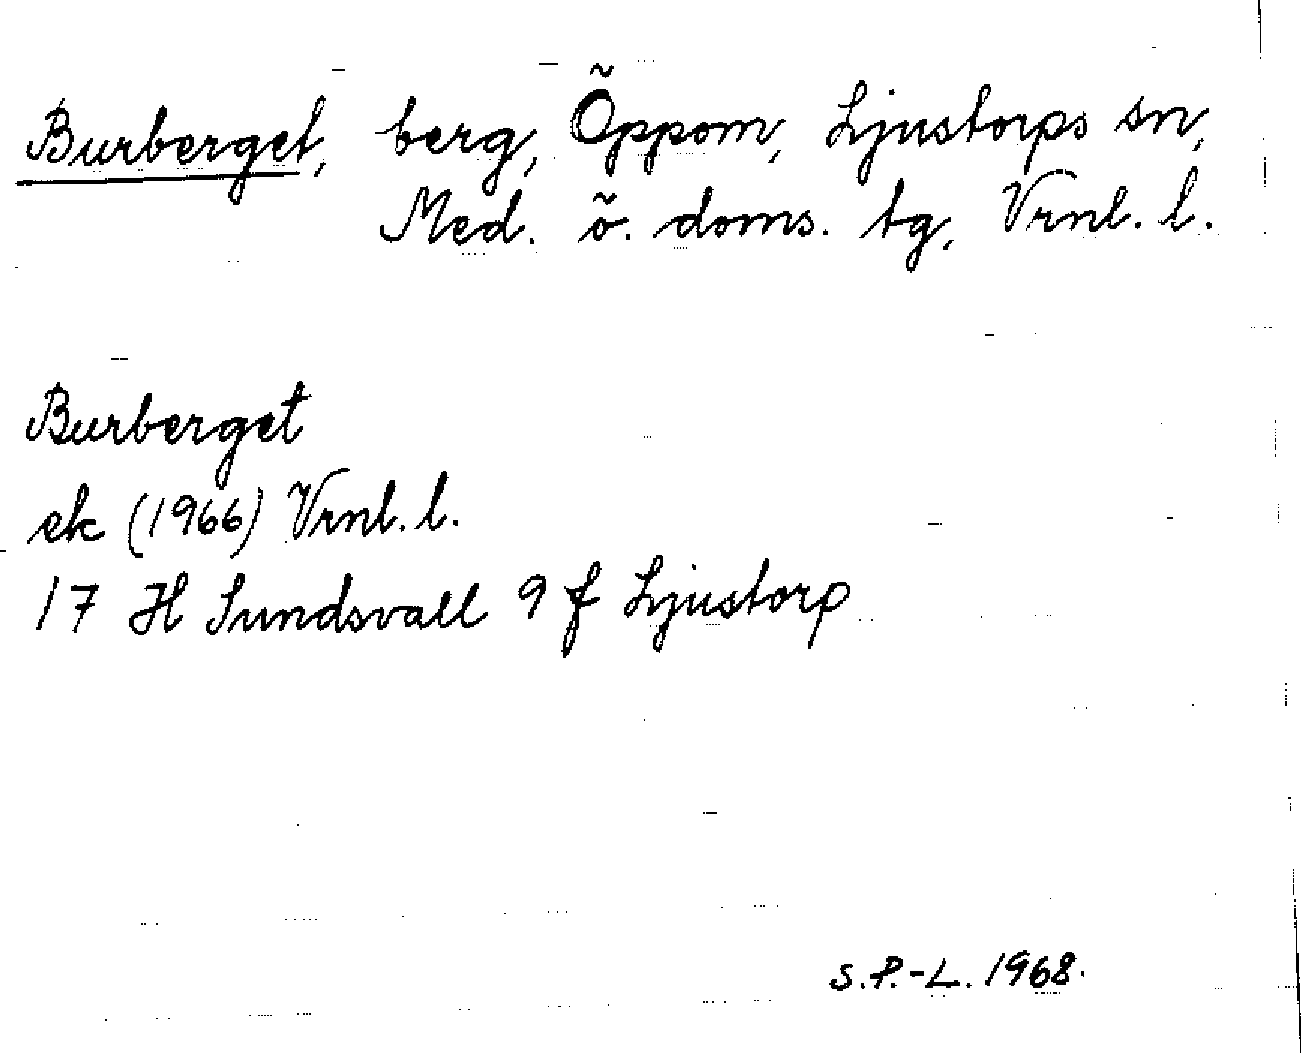 Burberget, berg, Õppom, Ljustorps sn,
Med. õ. doms. tg, Vrnl. l.
Burberget
ek (1966) Vrnl. l.
17 H Sundsvall 9 f Ljustorp
S.P.-L. 1968.